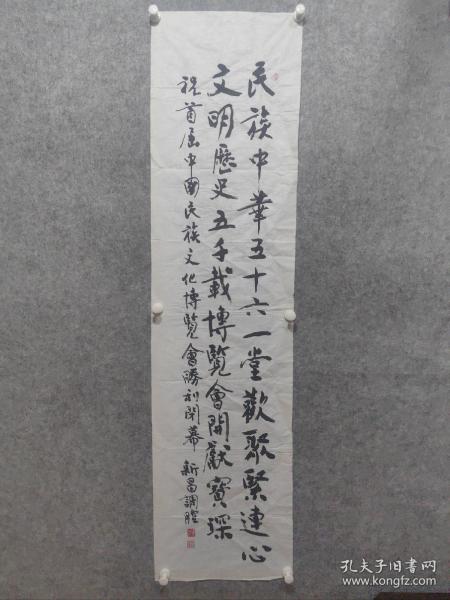 民族中華五十六一堂歡聚緊連心
文明歷史五千載博覽會開獻寶琛
祝首屆中國民族文化博覽會勝利閉幕 新昌調腔
孔夫子旧书网
www.kongfz.com